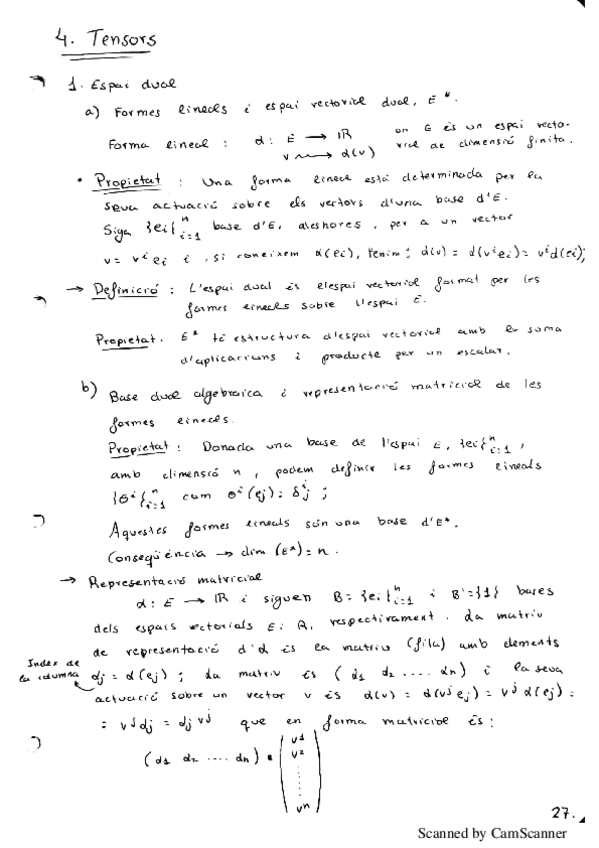 4. Tensors
1. Espai dual
a) Formes lineals i espai vectorial dual, E*.
Forma lineal : α: E → ℝ on E és un espai vecto-
v ⟿ α(v) rial de dimensió finita.
• Propietat : Una forma lineal està determinada per la
seva actuació sobre els vectors d'una base d'E.
Siga {ei}ⁿᵢ₌₁ base d'E, aleshores, per a un vector
v = vⁱ ei i, si coneixem α(ei), tenim; α(v) = α(vⁱei) = vⁱα(ei);
→ Definició : L'espai dual és el espai vectorial format per les
formes lineals sobre l'espai E.
Propietat. E* té estructura d'espai vectorial amb la suma
d'aplicacions i producte per un escalar.
b) Base dual algebraica i representació matricial de les
formes lineals.
Propietat : Donada una base de l'espai E, {ei}ⁿᵢ₌₁,
amb dimensió n, podem definir les formes lineals
{θⁱ}ⁿᵢ₌₁ com θⁱ(ej) = δⁱj ;
Aquestes formes lineals són una base d'E*.
Conseqüència → dim (E*) = n.
→ Representació matricial
α: E → ℝ i siguen B = {ei}ⁿᵢ₌₁ i B' = {1} bases
dels espais vectorials E i ℝ, respectivament. La matriu
de representació d'α és la matriu (fila) amb elements
Índex de
la columna
αj = α(ej) ; La matriu és (α1 α2 .... αn) i la seva
actuació sobre un vector v és α(v) = α(vʲej) = vʲ α(ej) =
= vʲαj = αj vʲ que en forma matricial és :
(α1 α2 .... αn) • (v¹
v²
⋮
vⁿ)
27.
Scanned by CamScanner